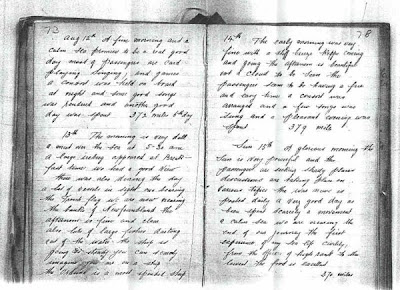 72
Aug 12th A fine morning and a
calm Sea promises to be a real good
day most of passengers are card
playing singing, and games
a concert was held on board
at night and some good songs
was rendered and another good
day was spent 373 miles 6th day
13th The morning is very dull
a mist on the sea at 5-30 am
a large iceberg appeared at Break-
fast time we had a good View
there was also during the day
a lot of vessels in sight one bearing
the French flag we are now nearing
the banks of Newfoundland the
afternoon is fine and clear
also lots of large fishes darting
out of the water the ship is
going so steady you can scarcely
imagine you are on a ship
the is a most splendid ship
73
14th The early morning was very
fine with a stiff breeze
and going the afternoon is
not a cloud to be Seen the
passengers Seem to be having a fine
and easy time a concert was
arranged and a few songs was
Sung and a pleasant evening was
Spent 379 mile
Sun 15th A glorious morning the
Sun is very powerful and the
passengers are seeking shady places
discussions are taking place on
Various topics the war news is
posted daily a very good day as
been spent scarcely a movement
a calm sea we are nearing the
end of our journey the first
experience of my Sea life
from the Officer of high rank to the
lowest the food is excellent
370 miles